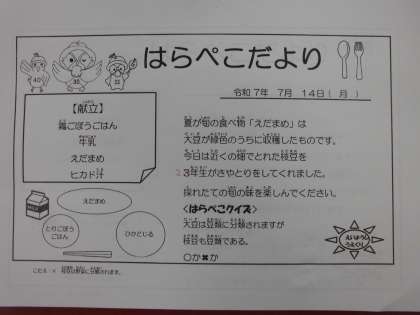 はらぺこだより
令和7年 7月 14日( 月 )
【献立】
鶏ごぼうごはん
牛乳
えだまめ
ヒカド汁
夏が旬の食べ物「えだまめ」は
大豆が緑色のうちに収穫したものです。
今日は近くの畑でとれた枝豆を
3年生がさやとりをしてくれました。
採れたての旬の味を楽しんでください。
<はらぺこクイズ>
大豆は豆類に分類されますが
枝豆も豆類である。
○か✖か
えだまめ
とりごぼう
ごはん
ひかどじる
こたえ:×